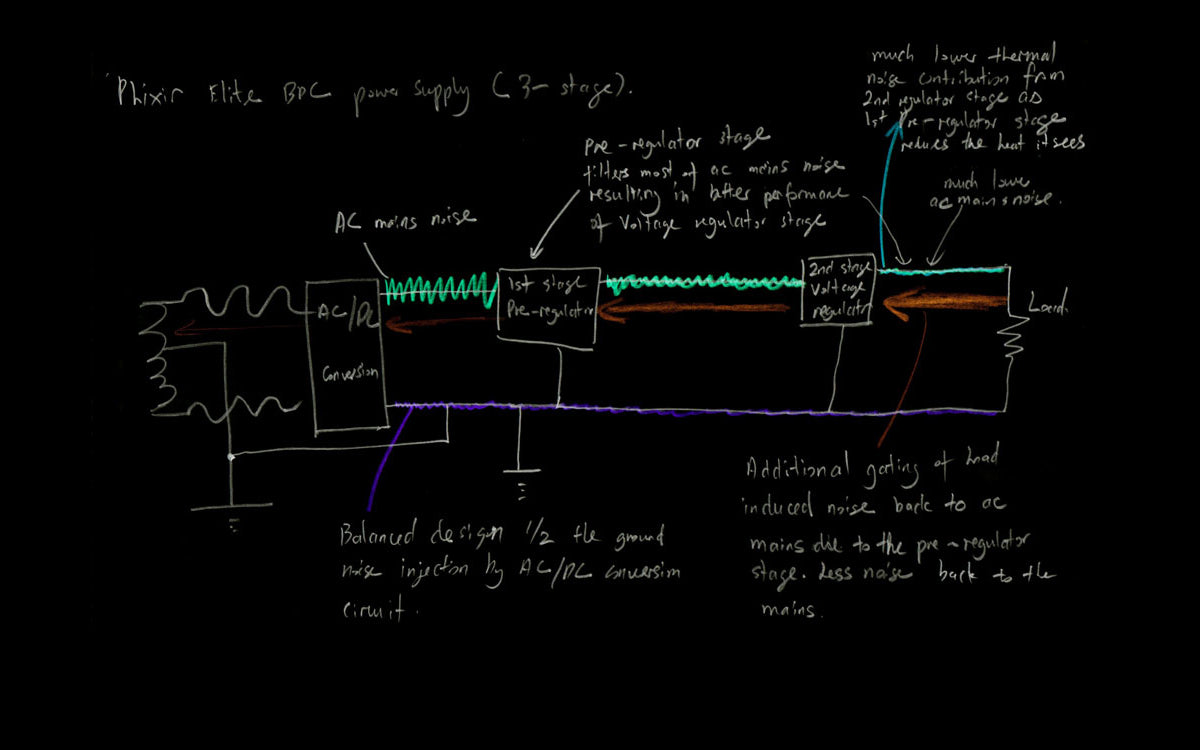 Phixir Elite BPC power supply (3-stage).
much lower thermal
noise contribution from
2nd regulator stage as
1st Pre-regulator stage
reduces the heat it sees
pre-regulator stage
filters most of ac mains noise
resulting in better performane
of Voltage regulator stage
much lower
ac mains noise.
AC mains noise
AC/DC
Conversion
1st stage
Pre-regulator
2nd stage
Voltage
regulator
Load
Balanced design 1/2 the ground
noise injection by AC/DC conversion
circuit.
Additional gating of load
induced noise back to ac
mains due to the pre-regulator
stage. Less noise back to the
mains.